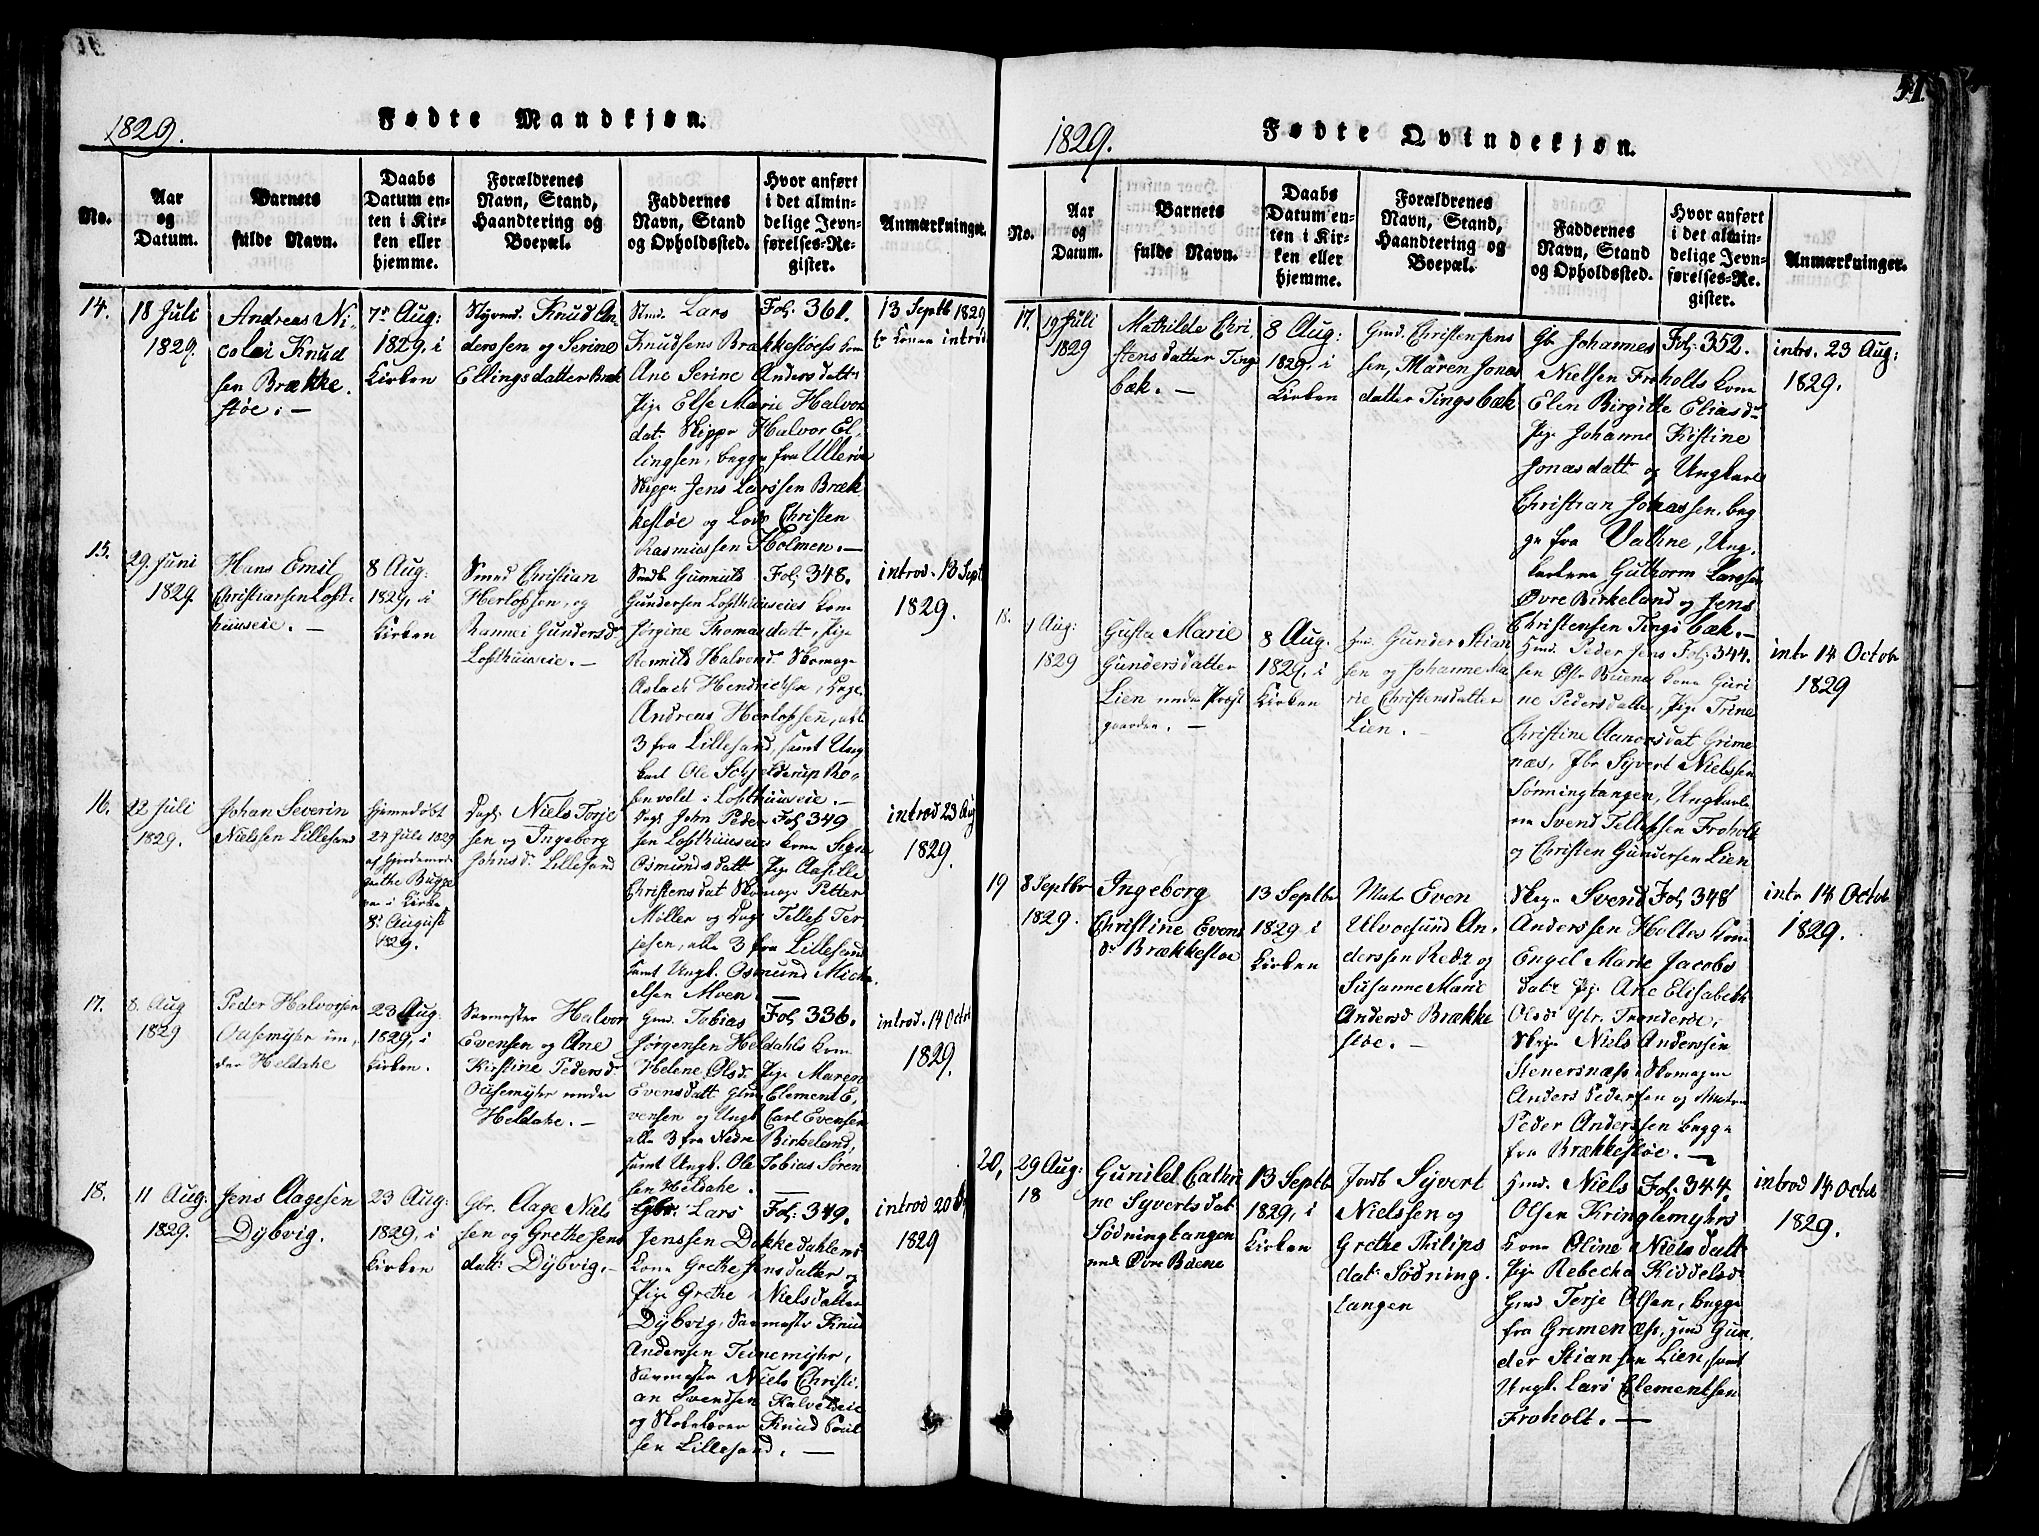 1829.
Fødte Mandkjøn.
No.
Aar
og
Datum.
Barnets
fulde Navn.
Daabs
Datum en-
ten i Kir-
ken eller
hjemme.
Forældrenes
Navn, Stand,
Haandtering og
Boepæl.
Faddernes
Navn, Stand
og Opholdssted.
Hvor anført
i det almin-
delige Jevn-
førelses-Re-
gister.
Anmærkninger.
14.
18 Juli
1829.
Andreas Ni-
colai Knud
sen Brække-
støe. —
7de Aug:
1829, i
Kirken
Knud An
derssen og Serine
Ellingsdatter Bræk
Lars
Knudsens Brækkestøes Kone
Ane Serine Andersdatt:
Pige Else Marie Halvors
dat: Skippr Halvor El-
lingsen, begge fra Ulleröe
Skippr Jens Larssen Bræk
kestøe og Lods Christen
Rasmussen Holmen. —
Fol: 361.
13 Septb 1829
Kone introd
15.
29 Juni
1829.
Hans Emil
Christiansen Loft-
huuseie. —
8 Aug:
1829, i
Kirken
Smed Christian
Herlofssen, og
Rannei Gundersd:
Lofthuuseie. —
Gunnuld
Gundersen Lofthuuseies Kone
Jørgine Thomasdatt, Pige
Halvorsd: Skomager
Aslach Hendrichsen, Unge
Andreas Herlofssen, alle
3 fra Lillesand, samt Ung
karl Ole Schjelderup Ro-
senvold i Lofthuuseie. —
Fol: 348.
introd. 13 Sept
1829.
16.
22 Juli
1829.
Johan Severin
Nielssen Lillesand
Hjemmedøbt
24 Juli 1829
af Gjordemod
Grethe Bugge
i Kirke
8de August
1829.
Niels Torje
sen og Ingeborg
Johnsd: Lillesand
John Peder
sen Lofthuuseies Kone Signe
Osmundsdatt Pige Aasille
Christensdat Skomagr Petter
Miller og Tellef Ter
jesen, alle 3 fra Lillesand
samt Ungk. Osmund Mich
elsen Moen —
Fol: 349
introd 23 Aug
1829.
17.
8 Aug
1829
Peder Halvorsen
Oasemyhr un-
der Heldahe
23 Aug:
1829, i
Kirken.
Halvor
Evensen og Ane
Kirstine Pedersd:
Oasemyhr under
Heldahe. —
Gmd. Tobias
Jørgensen Heldahls Kone
Helene Olsd: Pige Maren
Evensdatt Gmd Clement E-
vensen og Ungk Carl Evensen
alle 3 fra Nedre Birkeland,
samt Ungk. Ole Tobias Søren
sen Heldahe. —
Fol: 336.
introd. 14 Octbr
1829.
18.
11 Aug:
1829.
Jens Aagesen
Dybvig.
23 Aug:
1829, i
Kirken
Gbr. Aage Niels
sen og Grethe Jens
datt: Dybvig. —
Gbr: Lars
Jenssen Dokkedahlens
Kone Grethe Jensdatter og
Pige Grethe Nielsdatter
Dybvig, Knud
Anderssen Teinemyhr,
Niels Christi-
an Svendsen
og Knud Poul
sen Lillesand. —
Fol: 349.
introd 20
1829
51
1829.
Fødte Qvindekjøn.
No.
Aar
og
Datum.
Barnets
fulde Navn.
Daabs
Datum en-
ten i Kir-
ken eller
hjemme.
Forældrenes
Navn, Stand,
Haandtering og
Boepæl.
Faddernes
Navn, Stand
og Opholdssted.
Hvor anført
i det almin-
delige Jevn-
førelses-Re-
gister.
Anmærkninger.
17.
19 Juli
1829
Mathilde Chri-
stensdatter Tings
bæk. —
8 Aug:
1829, i
Kirken
Gmd. Christen Jens
sen, Maren Jonas
datter Tingsbæk
Gbr Johannes
Nielsen Froholts Kone
Elen Birgitte Eliasdr
Pige Johanne Kistine
Jonasdatt og Ungkarle
Christian Jonassen, beg
ge fra Vallne, Ung-
karlene Guthorm Larssen
Øvre Birkeland og Jens
Christensen Tingsbæk. —
Fol: 352.
intro. 23 Aug:
1829.
18.
1 Aug:
1829
Gusta Marie
Gundersdatter
Lien under Præst
gaarden. —
8 Aug.
1829, i
Kirken
Gunder Stian
sen og Johanne Ma
rie Christensdatter
Lien. —
Peder Jens
sen Øvre Buene Kone Guri
ne Pedersdatter, Pige Trine
Christine Aanorsdat Grime
næs, Sÿvert Nielssen
Sönningtangen, Ungkarle
ne Svend Tellefsen Froholt
og Christen Gundersen Lien
Fol: 344.
intr 14 Octobr
1829
19
8 Septbr
1829.
Ingeborg
Christine Evens
dr Brækkestøe
13 Septbr
1829 i
Kirken
Matr Even
Ulvøesund An-
derssen Redr og
Susanne Marie
Andersd Brække
støe. —
Svend
Anderssen Holtes Kone
Engel Marie Jacobs
datr Pige Ane Elisabeth
Olsd Ytr. Tronderöe,
Niels Anderssen
Stenersnæs, Skomager
Anders Pedersen og Matros
Peder Anderssen begge
fra Brækkestøe. —
Fol 348
intr 14 Octobr
1829.
20,
29 Aug:
18
Gunild Cathri
ne Syvertsdat
Södningtangen
under Øvre Buene
13 Septbr
1829, i
Kirken
Sÿvert
Nielssen og
Grethe Philips
dat: Södning-
tangen
Gmd. Niels
Olsen Kringlemyhrs
Kone Oline Nielsdatt
Pige Rebecka Kiddelsd:
Gmd Terje Olsen, begge
fra Grimenæs, Gmd Gun-
der Stiansen Lien, samt
Ungk. Lars Clementsen
Froholt. —
Fol: 344.
introd 14 Octbr
1829.